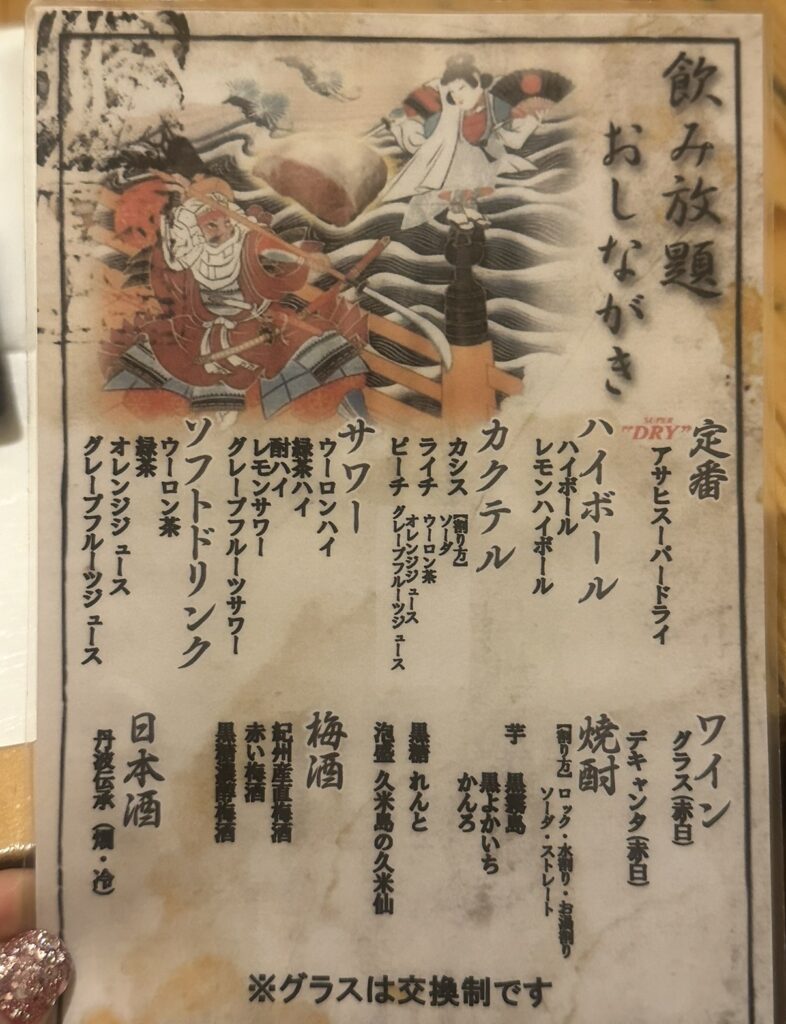 飲み放題
おしながき
定番
SUPER
"DRY"
アサヒスーパードライ
ハイボール
ハイボール
レモンハイボール
カクテル
カシス
ライチ
ピーチ
【割り方】
ソーダ
ウーロン茶
オレンジジュース
グレープフルーツジュース
サワー
ウーロンハイ
緑茶ハイ
酎ハイ
レモンサワー
グレープフルーツサワー
ソフトドリンク
ウーロン茶
緑茶
オレンジジュース
グレープフルーツジュース
ワイン
グラス(赤白)
デキャンタ(赤白)
焼酎
【割り方】ロック・水割り・お湯割り
ソーダ・ストレート
芋 黒霧島
黒よかいち
かんろ
黒糖 れんと
泡盛 久米島の久米仙
梅酒
紀州産直梅酒
赤い梅酒
黒糖濃醇梅酒
日本酒
丹波伝承(燗・冷)
※グラスは交換制です